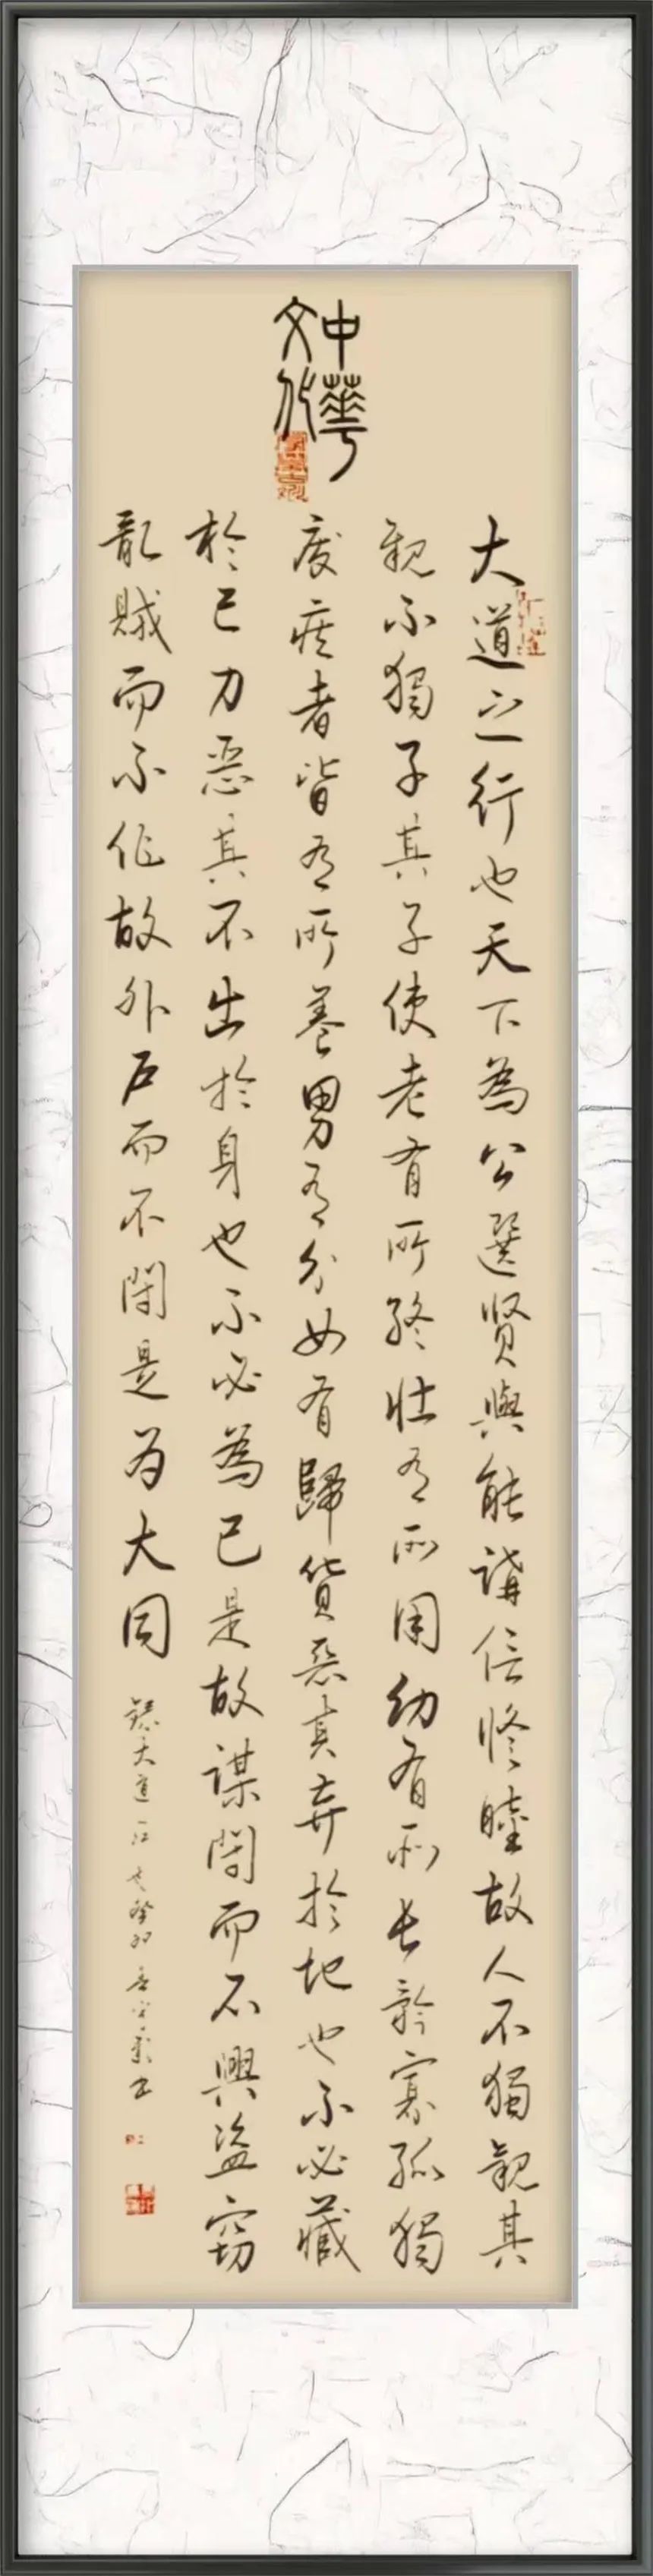 中華
文化
大道之行也天下為公選贤與能講信修睦故人不獨親其
親不獨子其子使老有所終壯有所用幼有所長矜寡孤獨
廢疾者皆有所養男有分女有歸貨惡其弃於地也不必藏
於己力惡其不出於身也不必為己是故謀閉而不興盗窃
亂賊而不作故外户而不閉是为大同
錄大道之行
癸卯